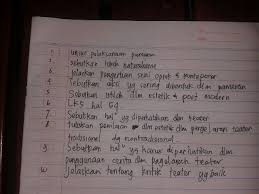 1. unsur pelaksanaan pameran
2. sebutkan tokoh naturalisme
3. jelaskan pengertian seni opret & kontemporer
4. Sebutkan apa yg sering dibentuk dlm pameran
5. Sebutkan istilah dlm estetik & post modern
6. LKS hal 69
7. Sebutkan hal² yg diperhatikan dlm teater
8. tuliskan penilaian dlm estetik dlm pergelaran teater
tradisional dg nontradisional
9. Sebutkan hal² yg harus diperhatikan dlm
penggunaan cerita dlm pagelaran teater
10. Jelaskan tentang kritik teater yg baik